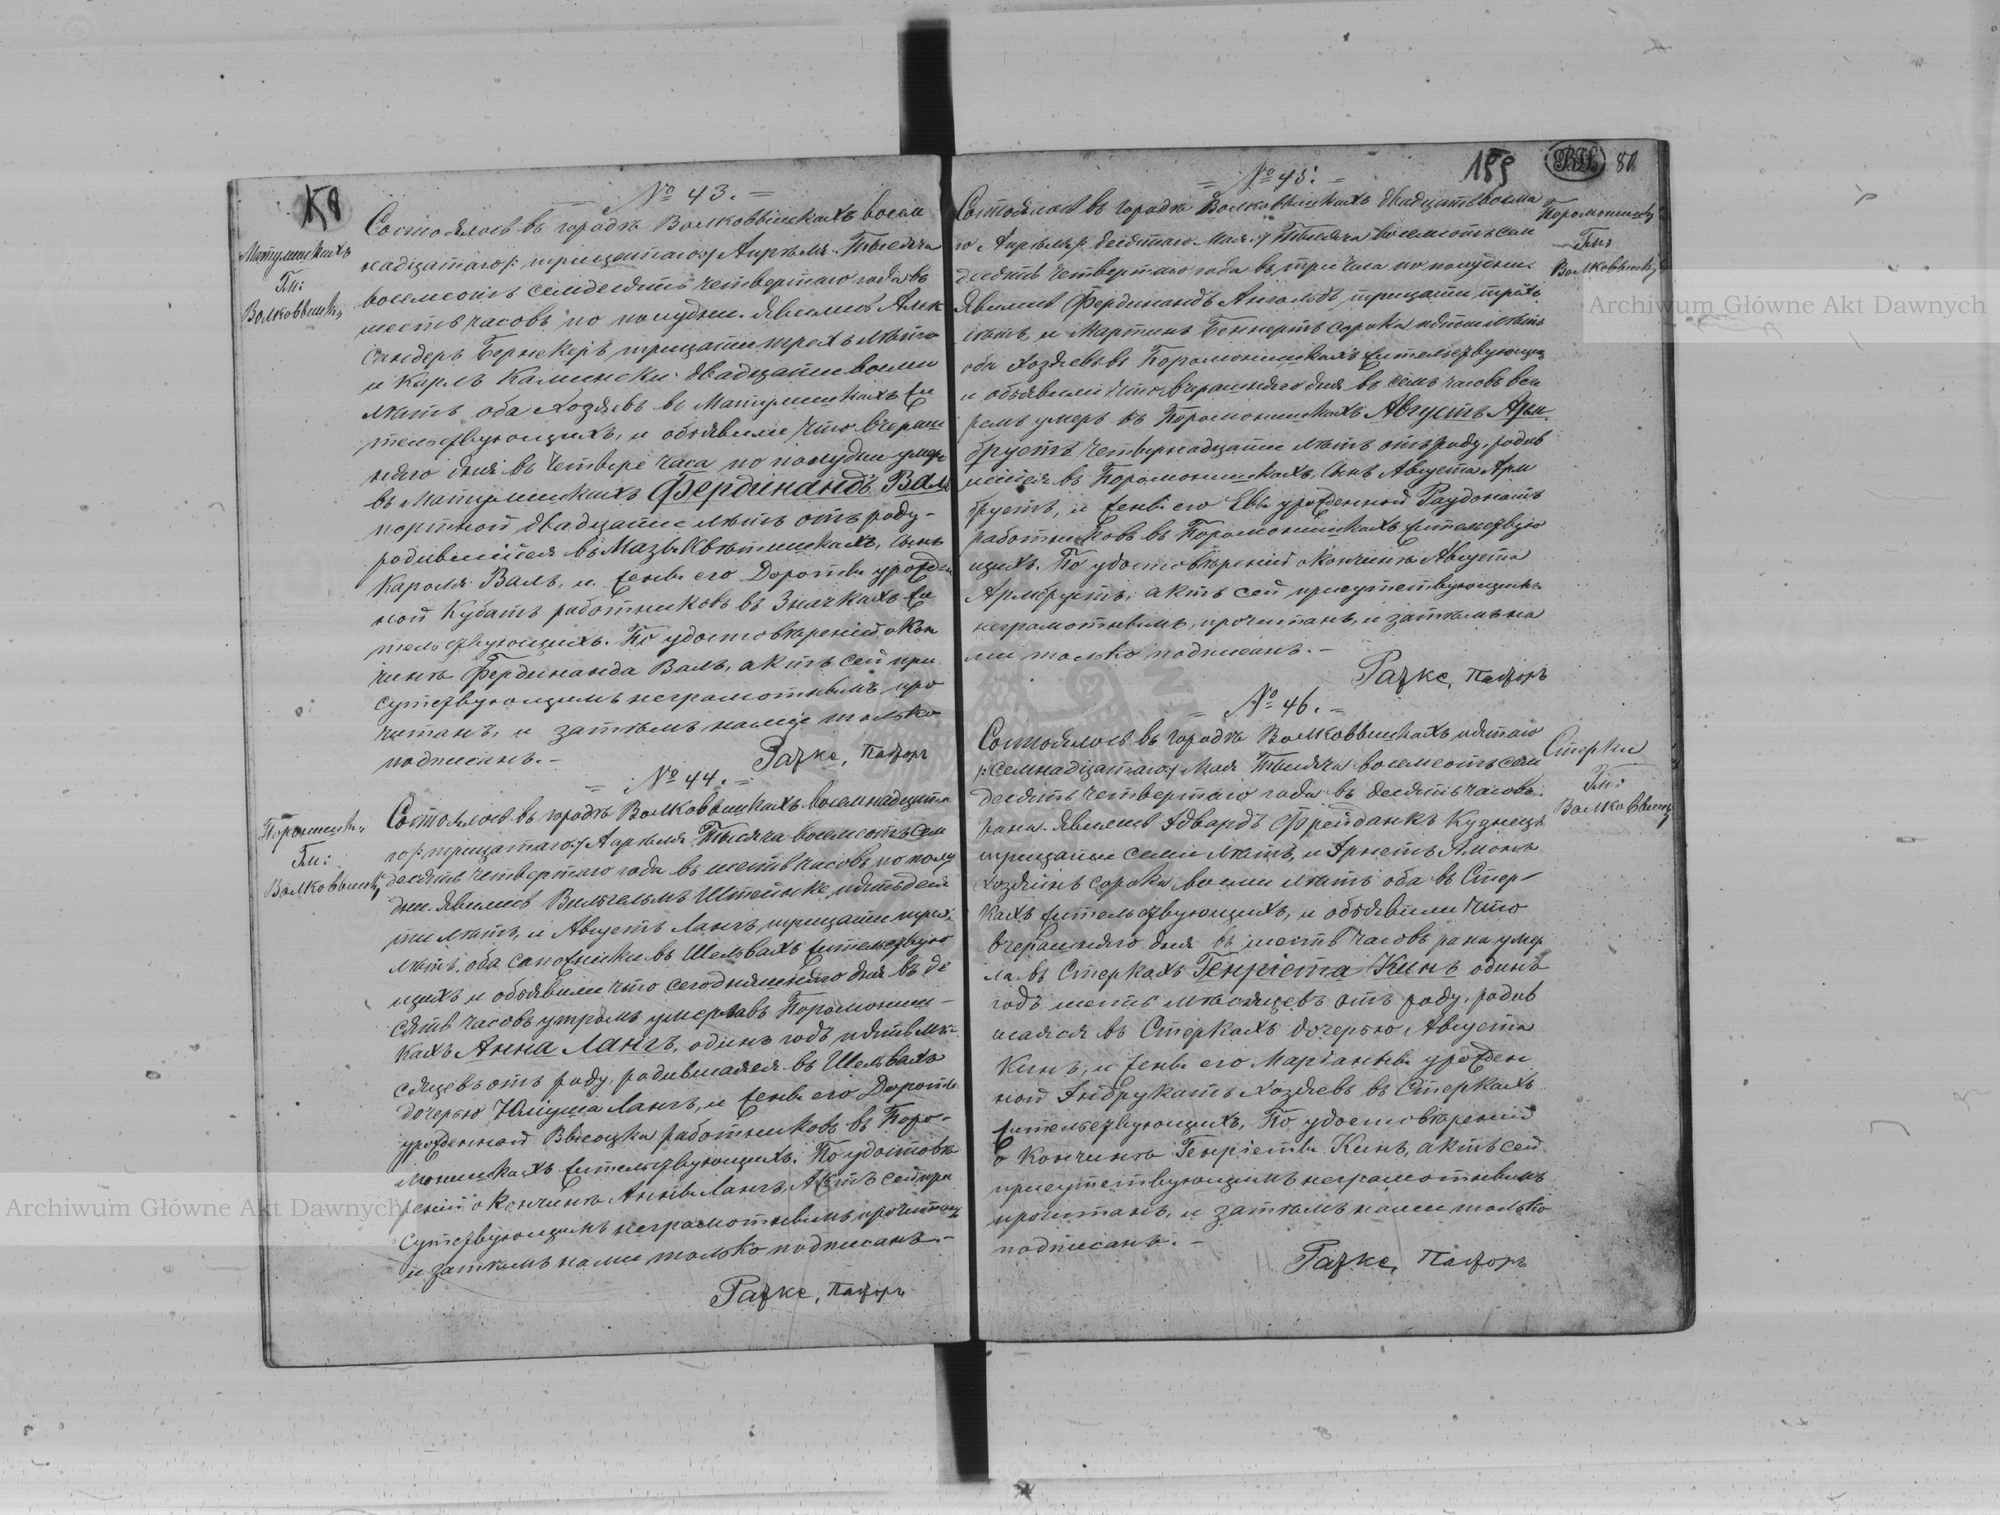 № 43.
Матулишкахъ
Гм:
Волковышк,
Состоялось въ городѣ Волковышкахъ восем
надцатаго /: тридцатаго :/ Апрѣля Тысяча
восемсотъ семдесятъ четвертаго года въ
шесть часовъ по полудни. Явились Алек
сандеръ Бернекеръ тридцати трехъ лѣтъ
и Карлъ Камински двадцати восьми
лѣтъ оба хозяевъ въ Матулишкахъ жи
тельствующихъ, и объявили что вчераш
няго дня въ четвере часа по полудни умеръ
въ Матулишкахъ Фердинандъ Валь
портной двадцати лѣтъ отъ роду,
родившійся въ Мазыквѣтишкахъ, сынъ
Кароля Валь, и жены его Дороты урожден
ной Кубатъ работниковъ въ Значкахъ жи
тельствующихъ. По удостовѣреніи о кон
чинѣ Фердинанда Валь, актъ сей при
сутствующимъ неграмотнымъ про
читанъ, и затѣмъ нами только
подписанъ.
Разке, Пасторъ
№ 44.
Гм:
Волковышк,
Состоялось въ городѣ Волковышкахъ восемнадцата
го /: тридцатаго :/ Апрѣля Тысяча восемсотъ сем
десятъ четвертаго года въ шесть часовъ по полу
дни. Явились Вильгельмъ Штейнке, пятьдеся
ти лѣтъ, и Августъ Лангъ, тридцати трехъ
лѣтъ, оба сапожники въ Шельвахъ жительствую
щихъ и объявили что сегодняшняго дня въ де
сять часовъ утромъ умерла въ Поромониш
кахъ Анна Лангъ, одинъ годъ пять мѣ
сяцевъ отъ роду, родившаяся въ Шельвахъ
дочерью Юліуша Лангъ, и жены его Дороты
урожденной Высоцка работниковъ въ Поро-
монишкахъ жительствующихъ. По удостовѣ
реніи о кончинѣ Анны Лангъ, Актъ сей при
сутствующимъ неграмотнымъ прочитанъ
и затѣмъ нами только подписанъ.
Разке, Пасторъ
ВК 80
№ 45.
Гм:
Волковышк,
Состоялось въ городѣ Волковышкахъ двадцать восьма
го Апрѣля /: десятаго Мая :/ Тысяча восемсотъ сем
десятъ четвертаго года въ три часа по полудни.
Явились Фердинандъ Ангольдъ, тридцати трехъ
лѣтъ, и Мартинъ Беннертъ сорока пяти лѣтъ
оба хозяевъ въ Поромонишкахъ жительствующихъ
и объявили что вчерашняго дня въ семь часовъ вече
ромъ умеръ въ Поромонишкахъ Августъ Арм
брустъ четырнадцати лѣтъ отъ роду, родив
шійся въ Поромонишкахъ, сынъ Августа Арм
брустъ, и жены его Евы урожденной Раудонатъ
работниковъ въ Поромонишкахъ жительствую
щихъ. По удостовѣреніи о кончинѣ Августа
Армбрустъ, актъ сей присутствующимъ
неграмотнымъ, прочитанъ, и затѣмъ на
ми только подписанъ.
Разке, Пасторъ
№ 46.
Стерки
Гм:
Волковышк,
Состоялось въ городѣ Волковышкахъ пятаго
/: семнадцатаго :/ Мая Тысяча восемсотъ сем
десятъ четвертаго года въ десять часовъ
рана. Явились Эдвардъ Фрейданкъ Кузнецъ
тридцати семи лѣтъ, и Эрнестъ Ямонъ
хозяинъ сорока восьми лѣтъ оба въ Стер-
кахъ жительствующихъ, и объявили что
вчерашняго дня въ шесть часовъ рана умер
ла въ Стеркахъ Генріета Кинъ одинъ
годъ шесть мѣсяцевъ отъ роду, родив
шаяся въ Стеркахъ дочерью Августа
Кинъ, и жены его Маріанны урожден
ной Эндрукатъ хозяевъ въ Стеркахъ
жительствующихъ. По удостовѣреніи
о кончинѣ Генріеты Кинъ, актъ сей
присутствующимъ неграмотнымъ
прочитанъ, и затѣмъ нами только
подписанъ.
Разке, Пасторъ
Archiwum Główne Akt Dawnych
Archiwum Główne Akt Dawnych